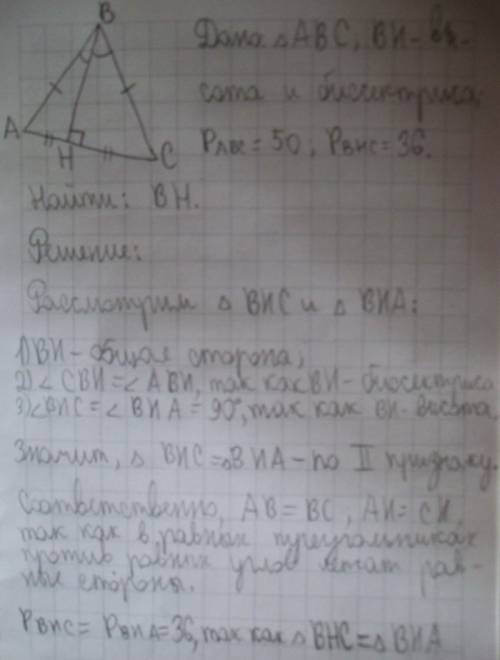 B
Дано: △ABC, BH - вы-
сота и биссектриса,
A
P ABC = 50; P BHC = 36.
H
C
Найти: BH.
Решение:
Рассмотрим △ BHC и △ BHA:
1) BH - общая сторона;
2) ∠ CBH = ∠ ABH, так как BH - биссектриса
3) ∠BHC = ∠ BHA = 90°, так как BH - высота,
Значит, △ BHC = △BHA - по II признаку.
Соответственно, AB = BC, AH = CH,
так как в равных треугольниках
против равных углов лежат рав-
ные стороны.
P BHC = P BHA = 36, так как △ BHC = △ BHA